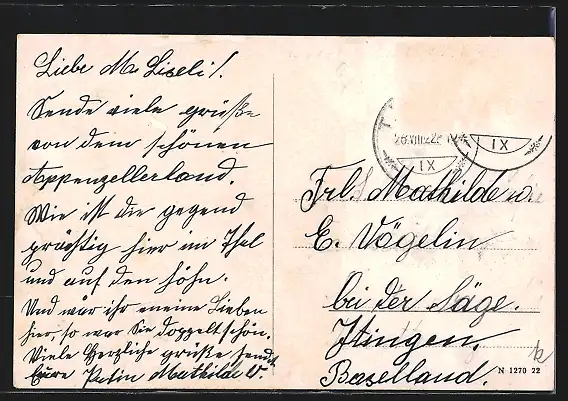 Liebe M. Liseli!
Sende viele grüße
von dem schönen
Appenzellerland.
Wie ist die gegend
prächtig hier im Thal
und auf den höhn.
Und wär ihr meine Lieben
hier, so wär Sie doppelt schön.
Viele Herzliche grüße sendet
Eure Mathilde V.
26.VIII.22
IX
IX
Frl. Mathilde u.
E. Vögelin
bei der Säge.
Itingen.
Baselland.
N 1270 22